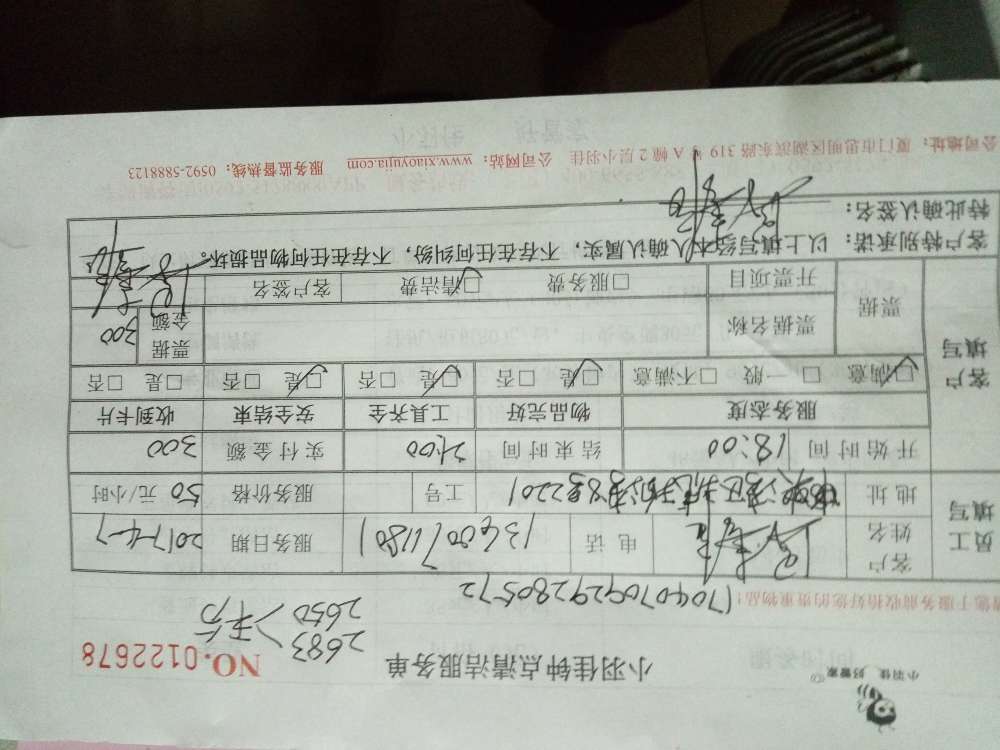 小羽佳 好管家
小羽佳钟点清洁服务单
NO.0122678
2683
2650
请您于服务前收拾好您的贵重物品:
1704070929280572
员工填写
客户姓名
电话
服务日期 2017-4-7
地址
工号
服务价格 50 元/小时
开始时间 18:00
结束时间 21:00
实付金额 300
客户填写
服务态度 物品完好 工具齐全 安全结束 收到卡片
☑满意 □一般 □不满意 ☑是 □否 ☑是 □否 ☑是 □否 □是 □否
票据
票据名称
票据金额 300
开票项目 □服务费 ☑清洁费
客户签名
客户特别承诺:以上填写经本人确认属实,不存在任何纠纷,不存在任何物品损坏。
特此确认签名:
公司地址:厦门市思明区湖滨东路 319 号 A 幢 2 层小羽佳 公司网站:www.xiaoyujia.com 服务监督热线:0592-5888123